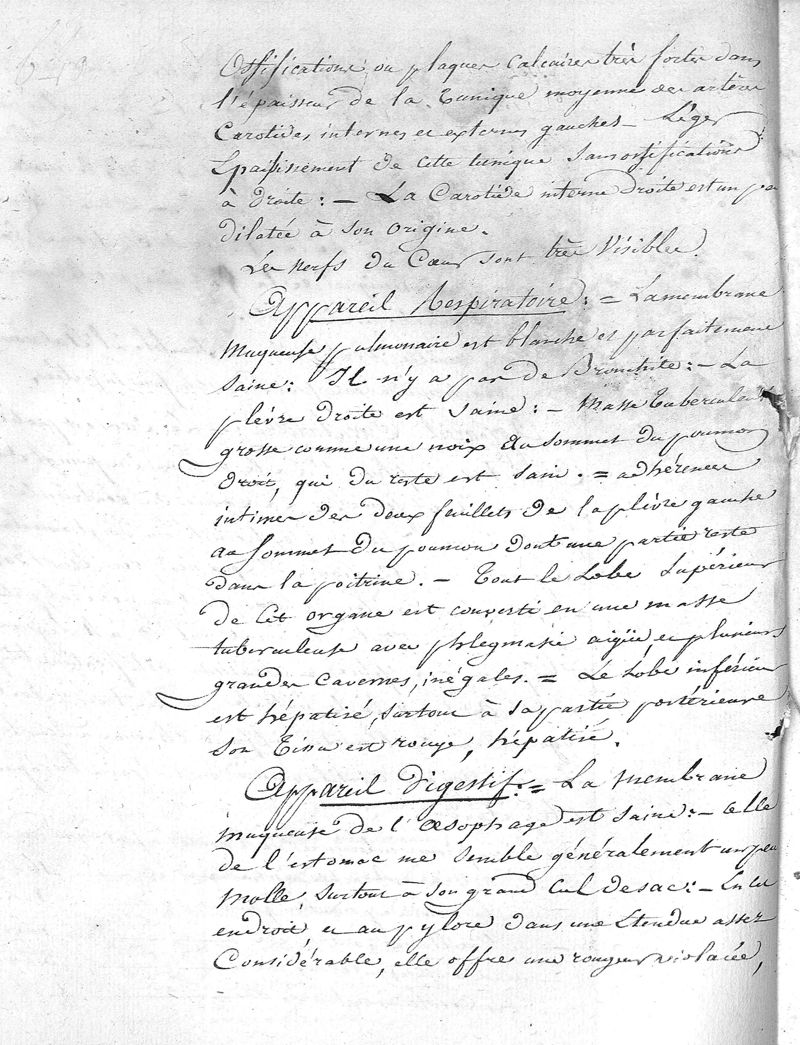 Ossifications ou plaques Calcaires très fortes dans
l'épaisseur de la tunique moyenne des artères
Carotides internes et externes gauches – Léger
Epaississement de cette tunique sans ossifications
à droite : – La Carotide interne droite est un peu
dilatée à son origine.
Les nerfs du Cœur sont très Visibles.
Appareil Respiratoire : = La membrane
Muqueuse pulmonaire est blanche et parfaitement
saine : Il n'y a pas de Bronchite : – La
plèvre droite est saine : – Masse tuberculeuse
grosse comme une noix au sommet du poumon
droit, qui du reste est sain. = adhérences
intimes des deux feuillets de la plèvre gauche
au sommet du poumon dont une partie reste
dans la poitrine. – Tout le Lobe Supérieur
de Cet organe est converti en une masse
tuberculeuse avec phlegmasie aigüe et plusieurs
grandes Cavernes, inégales. = Le Lobe inférieur
est hépatisé, surtout à sa partie postérieure
son Tissu est rouge, hépatisé.
Appareil digestif : = La Membrane
muqueuse de l'œsophage est saine : – Celle
de l'estomac me semble généralement un peu
Molle, surtout à son grand Cul de sac : – En cet
endroit et au pylore dans une Etendue assez
Considérable, elle offre une rougeur violacée,